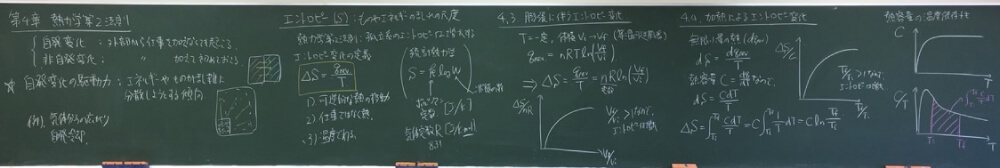 第4章 熱力学第2法則
自発変化 : 外部から仕事を加えなくても起こる.
非自発変化 : 〃 加えて初めて起こる.
☆ 自発変化の駆動力 : エネルギーやものが乱雑に
分散しようとする傾向
(例) 気体が広がり
自然冷却
エントロピー (S) : ものやエネルギーの乱れの尺度
熱力学第2法則 : 孤立系のエントロピーは増大する
エントロピー変化の定義
ΔS = qrev/T
1) 可逆的な熱の移動
2) 仕事ではなく熱
3) 温度で割る
統計熱力学
S = k log W
ボルツマン定数 [J/K]
気体定数 R [J/K mol]
8.31
4.3 膨張に伴うエントロピー変化
T = 一定, 体積 Vi→Vf (等温可逆膨張)
qrev = nRT ln(Vf/Vi)
⇒ ΔS = qrev/T = nR ln(Vf/Vi)
ΔS/nR
Vf/Vi
Vf/Vi > 1 なので,
エントロピーは増大
4.4 加熱によるエントロピー変化
無限小量の熱 (dqrev)
dS = dqrev/T
熱容量 C = 一定なので,
dS = CdT/T
ΔS = ∫Ti Tf CdT/T = C∫Ti Tf 1/T dT = C ln Tf/Ti
ΔS/C
Tf/Ti
Tf/Ti > 1 なので,
エントロピーは増大
熱容量の温度依存性
C
T
C/T
∫Ti Tf CdT/T
Ti Tf T